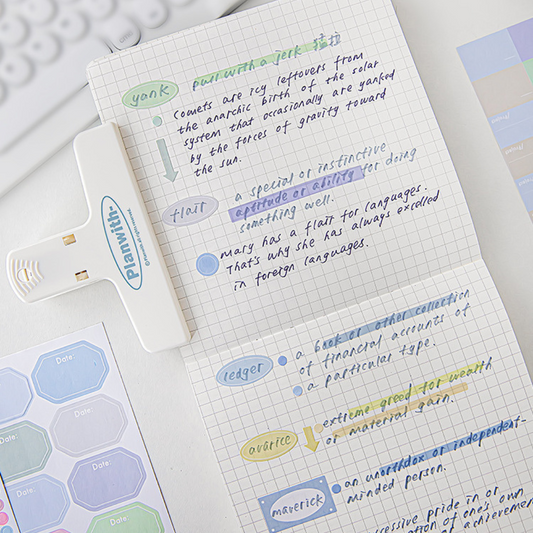 yank
pull with a jerk 猛拉
Comets are icy leftovers from
the anarchic birth of the solar
system that occasionally are yanked
by the forces of gravity toward
the sun.
flait
a special or instinctive
aptitude or ability for doing
something well.
Mary has a flait for languages.
That's why she has always excelled
in foreign languages.
Planwith.
ledger
a book or other collection
of financial accounts of
a particular type.
avarice
extreme greed for wealth
or material gain.
maverick
an unorthdox or independent-
minded person.
cessive pride in or
ation of one's own
achievemen
Date:
Date:
Date:
Date:
Date:
Date: